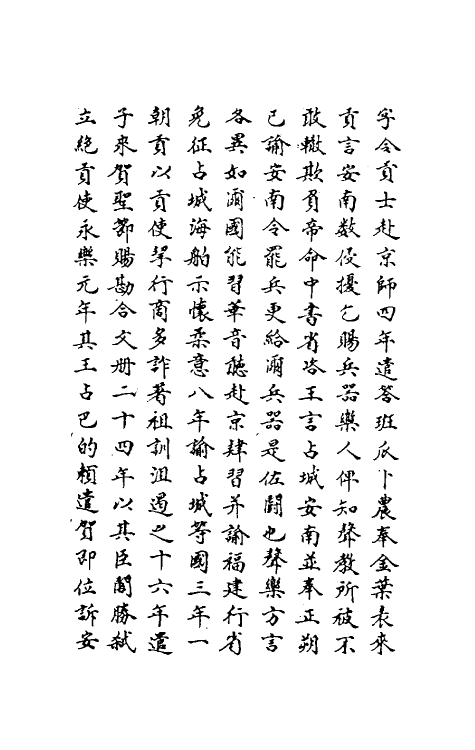 字令貢士赴京師四年遣答班瓜卜農奉金葉表來
貢言安南數侵擾乞賜兵器樂人俾知聲教所被不
敢輒欺負帝命中書省咨王言占城安南並奉正朔
已諭安南令罷兵更給爾兵器是佐鬭也聲樂方言
各異如爾國能習華音聽赴京肄習并諭福建行省
免征占城海舶示懷柔意八年諭占城等國三年一
朝貢以貢使挈行商多詐著祖訓沮遏之十六年遣
子來賀聖節賜勘合文册二十四年以其臣閣勝弑
立絶貢使永樂元年其王占巴的賴遣賀即位訴安